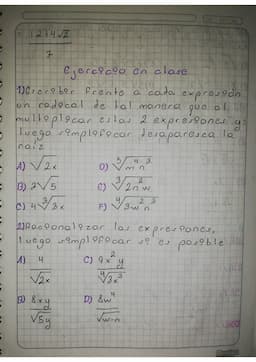 12+4√2
7
Ejercicio en clase
1) Escribir frente a cada expresión
un radical de tal manera que al
multiplicar estas 2 expresiones y
luego simplificar desaparezca la
raíz
A) √2x D) ⁵√m⁴n³
B) 2√5 E) ³√2n²w
C) 4³√3x F) ⁴√9w²n³
2) Racionalizar las expresiones,
luego simplificar si es posible
A) 4 C) 9x²y
√2x ⁴√3x³
B) 8xy D) 8w⁴
√5y √w·n